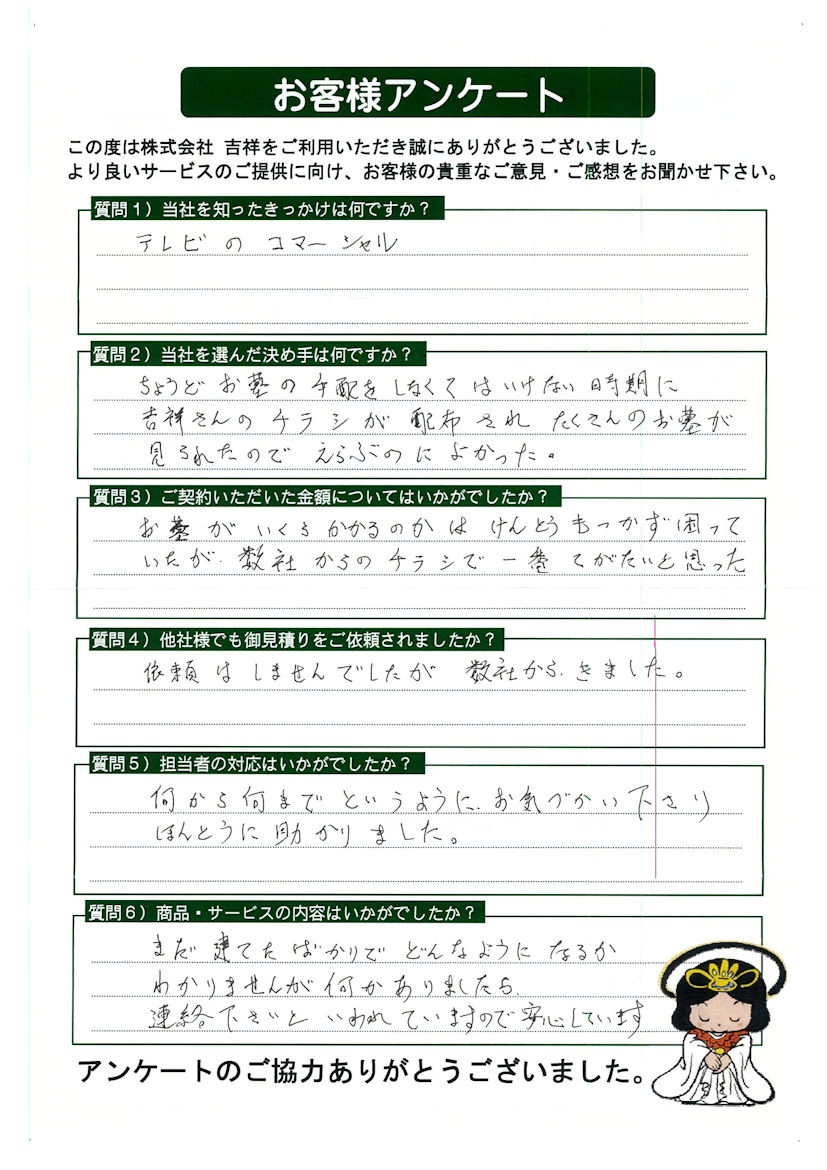 お客様アンケート
この度は株式会社 吉祥をご利用いただき誠にありがとうございました。
より良いサービスのご提供に向け、お客様の貴重なご意見・ご感想をお聞かせ下さい。
質問１）当社を知ったきっかけは何ですか？
テレビの コマーシャル
質問２）当社を選んだ決め手は何ですか？
ちょうど お墓の手配をしなくてはいけない時期に
吉祥さんの チラシが 配布され たくさんのお墓が
見られたので えらぶのに よかった。
質問３）ご契約いただいた金額についてはいかがでしたか？
お墓が いくらかかるのかは けんとうもつかず困って
いたが、数社からのチラシで 一番 てがたいと思った
質問４）他社様でも御見積りをご依頼されましたか？
依頼はしませんでしたが 数社から、きました。
質問５）担当者の対応はいかがでしたか？
何から何までというように、お気づかい下さり
ほんとうに助かりました。
質問６）商品・サービスの内容はいかがでしたか？
まだ 建てたばかりで どんなように なるか
わかりませんが何かありましたら、
連絡下さいと いわれていますので安心しています
アンケートのご協力ありがとうございました。